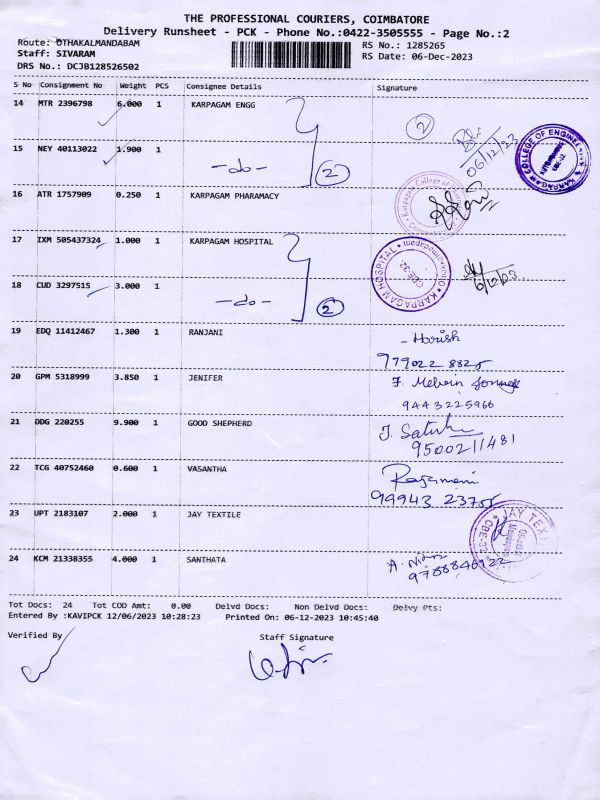 THE PROFESSIONAL COURIERS, COIMBATORE
Delivery Runsheet - PCK - Phone No.:0422-3505555 - Page No.:2
Route: OTHAKALMANDABAM
Staff: SIVARAM
DRS No.: DCJB128526502
RS No.: 1285265
RS Date: 06-Dec-2023
S No Consignment No Weight PCS Consignee Details Signature
14 MTR 2396798 6.000 1 KARPAGAM ENGG
2
06/12/23
COLLEGE OF ENGINEE
KARPAGAM
CBE-32
15 NEY 40113022 1.900 1 -do- 2
16 ATR 1757909 0.250 1 KARPAGAM PHARAMACY
Karpagam College of
17 IXM 505437324 1.000 1 KARPAGAM HOSPITAL
KARPAGAM HOSPITAL
CBE-32
18 CUD 3297515 3.000 1 -do- 2
19 EDQ 11412467 1.300 1 RANJANI
- Harish
779022 8825
20 GPM 5318999 3.850 1 JENIFER
F. Melvin
9443225966
21 DDG 220255 9.900 1 GOOD SHEPHERD
J. Satish
9500211481
22 TCG 40752460 0.600 1 VASANTHA
Rajamani
99943 23755
23 UPT 2183107 2.000 1 JAY TEXTILE
JAY TEX
CBE-32
24 KCM 21338355 4.000 1 SANTHATA
A.
9788846922
Tot Docs: 24 Tot COD Amt: 0.00 Delvd Docs: Non Delvd Docs: Delvy Pts:
Entered By :KAVIPCK 12/06/2023 10:28:23 Printed On: 06-12-2023 10:45:40
Verified By Staff Signature